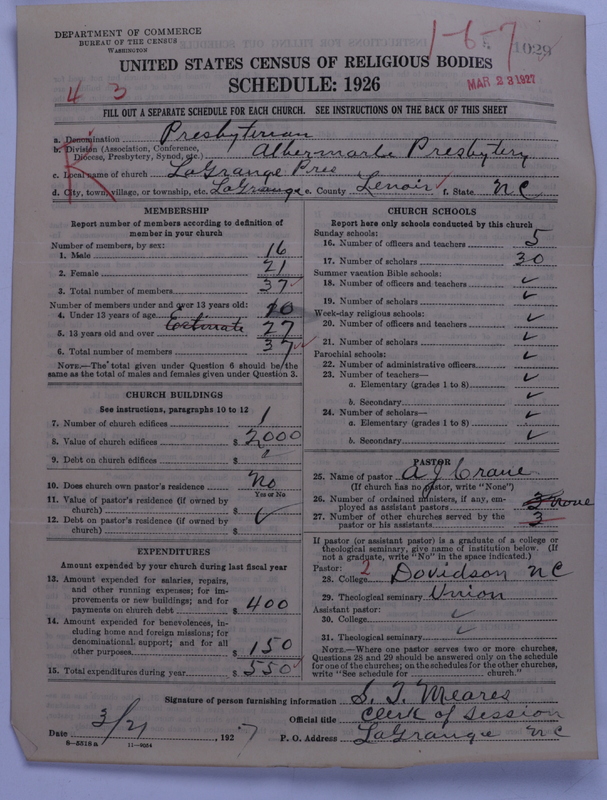 DEPARTMENT OF COMMERCE
BUREAU OF THE CENSUS
WASHINGTON
1-6-7
1029
MAR 23 1927
UNITED STATES CENSUS OF RELIGIOUS BODIES
SCHEDULE: 1926
4 3
FILL OUT A SEPARATE SCHEDULE FOR EACH CHURCH. SEE INSTRUCTIONS ON THE BACK OF THIS SHEET
a. Denomination Presbyterian
b. Division (Association, Conference, Diocese, Presbytery, Synod, etc.) Albermarle Presbytery
c. Local name of church LaGrange Pres
d. City, town, village, or township, etc. LaGrange e. County Lenoir f. State NC
MEMBERSHIP
Report number of members according to definition of member in your church
Number of members, by sex:
1. Male 16
2. Female 21
3. Total number of members 37
Number of members under and over 13 years old:
4. Under 13 years of age 10
5. 13 years old and over Estimate 27
6. Total number of members 37
NOTE.—The total given under Question 6 should be the same as the total of males and females given under Question 3.
CHURCH BUILDINGS
See instructions, paragraphs 10 to 12
7. Number of church edifices 1
8. Value of church edifices $ 2000
9. Debt on church edifices $
10. Does church own pastor's residence? No
Yes or No
11. Value of pastor's residence (if owned by church) $
12. Debt on pastor's residence (if owned by church) $ ✓
EXPENDITURES
Amount expended by your church during last fiscal year
13. Amount expended for salaries, repairs, and other running expenses; for improvements or new buildings; and for payments on church debt $ 400
14. Amount expended for benevolences, including home and foreign missions; for denominational support; and for all other purposes $ 150
15. Total expenditures during year $ 550
CHURCH SCHOOLS
Report here only schools conducted by this church
Sunday schools:
16. Number of officers and teachers 5
17. Number of scholars 30
Summer vacation Bible schools:
18. Number of officers and teachers ✓
19. Number of scholars ✓
Week-day religious schools:
20. Number of officers and teachers ✓
21. Number of scholars ✓
Parochial schools:
22. Number of administrative officers ✓
23. Number of teachers—
a. Elementary (grades 1 to 8) ✓
b. Secondary ✓
24. Number of scholars—
a. Elementary (grades 1 to 8) ✓
b. Secondary ✓
PASTOR
25. Name of pastor A J Crane
(If church has no pastor, write "None")
26. Number of ordained ministers, if any, employed as assistant pastors None
27. Number of other churches served by the pastor or his assistants 3
If pastor (or assistant pastor) is a graduate of a college or theological seminary, give name of institution below. (If not a graduate, write "No" in the space indicated.)
Pastor: 2
28. College Davidson NC
29. Theological seminary Union
Assistant pastor:
30. College ✓
31. Theological seminary ✓
NOTE.—Where one pastor serves two or more churches, Questions 28 and 29 should be answered only on the schedule for one of the churches; on the schedules for the other churches, write "See schedule for church."
Signature of person furnishing information S. T. Meares
Official title Clerk of Session
Date 3/21, 1927 P. O. Address LaGrange NC
8-5518 a 11-9054